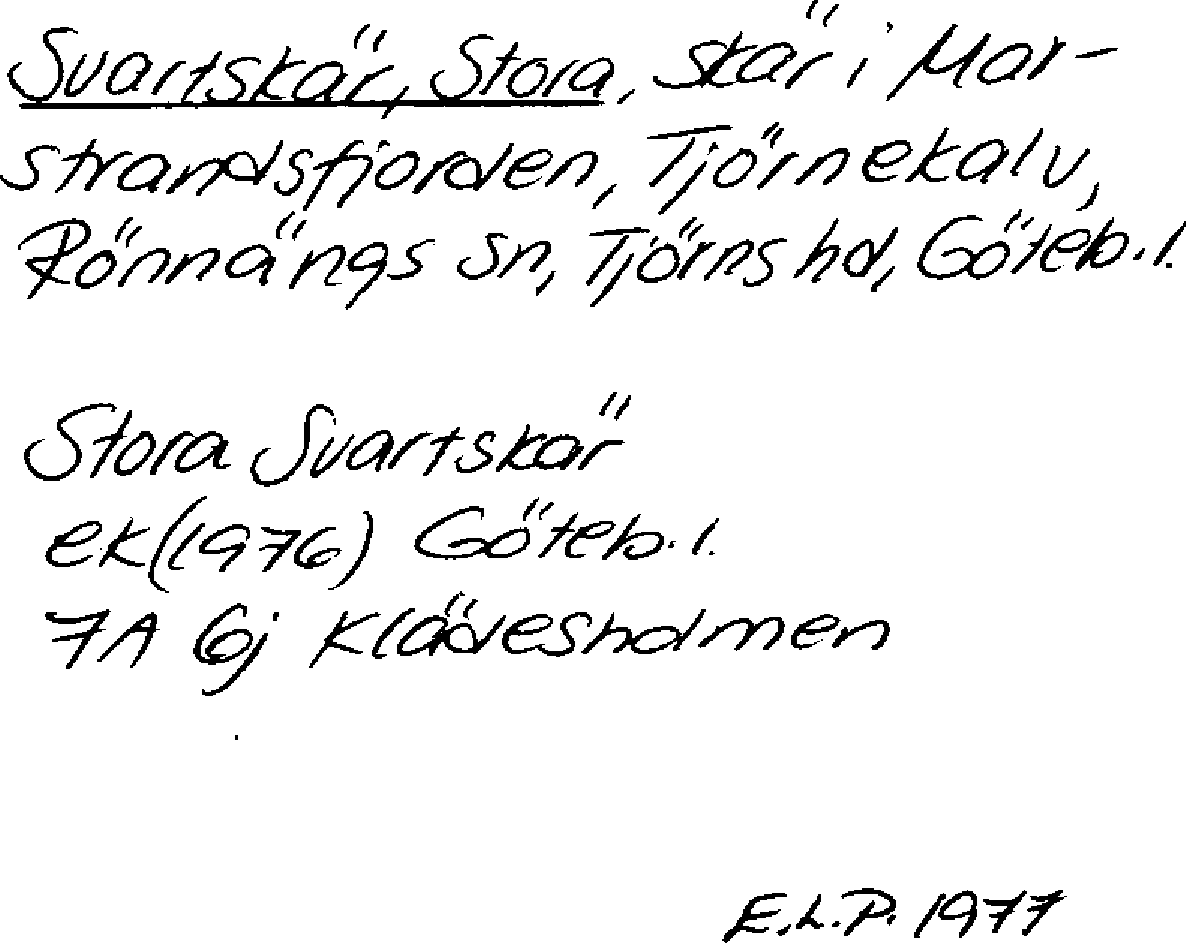 Svartskär, Stora, skär i Mar-
strandsfjorden, Tjörnekalv,
Rönnängs sn, Tjörns hd, Göteb.l.
Stora Svartskär
ek(1976) Göteb.l.
7A 6j Klädesholmen
E.L.P. 1977